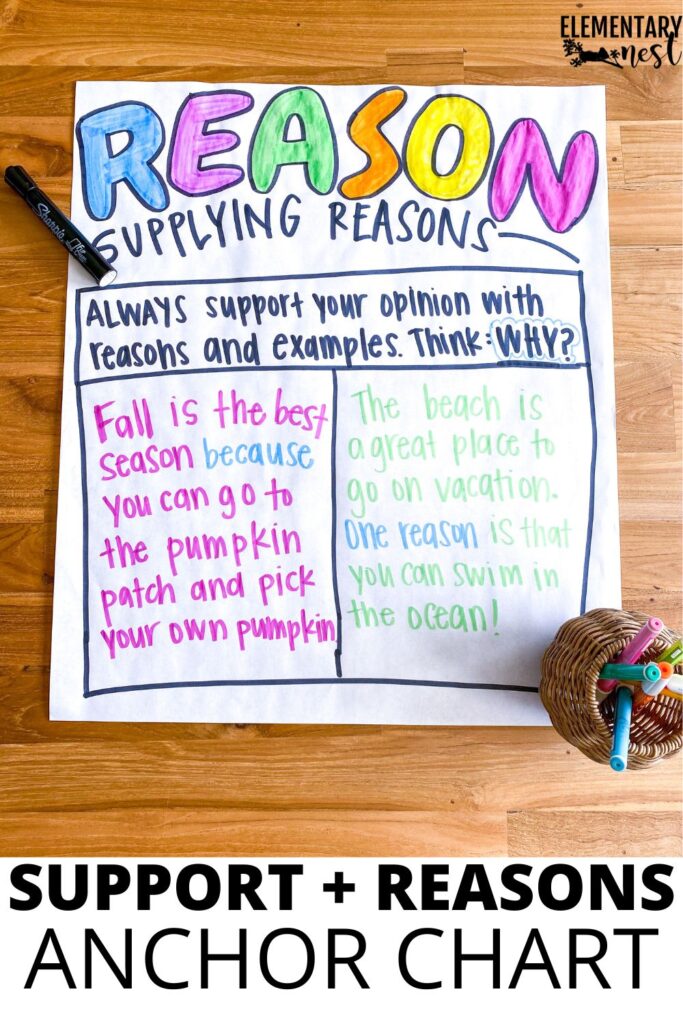 ELEMENTARY
nest
REASON
SUPPLYING REASONS
Sharpie
ALWAYS support your opinion with
reasons and examples. Think: WHY?
Fall is the best
season because
you can go to
the pumpkin
patch and pick
your own pumpkin
The beach is
a great place to
go on vacation.
One reason is that
you can swim in
the ocean!
SUPPORT + REASONS
ANCHOR CHART